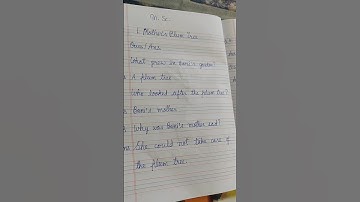 1. Mother's Plum Tree
Ques/Ans
What grew in Bani's garden?
A plum tree
Who looked after the plum tree?
Bani's mother
Why was Bani's mother sad?
She could not take care of
the plum tree.